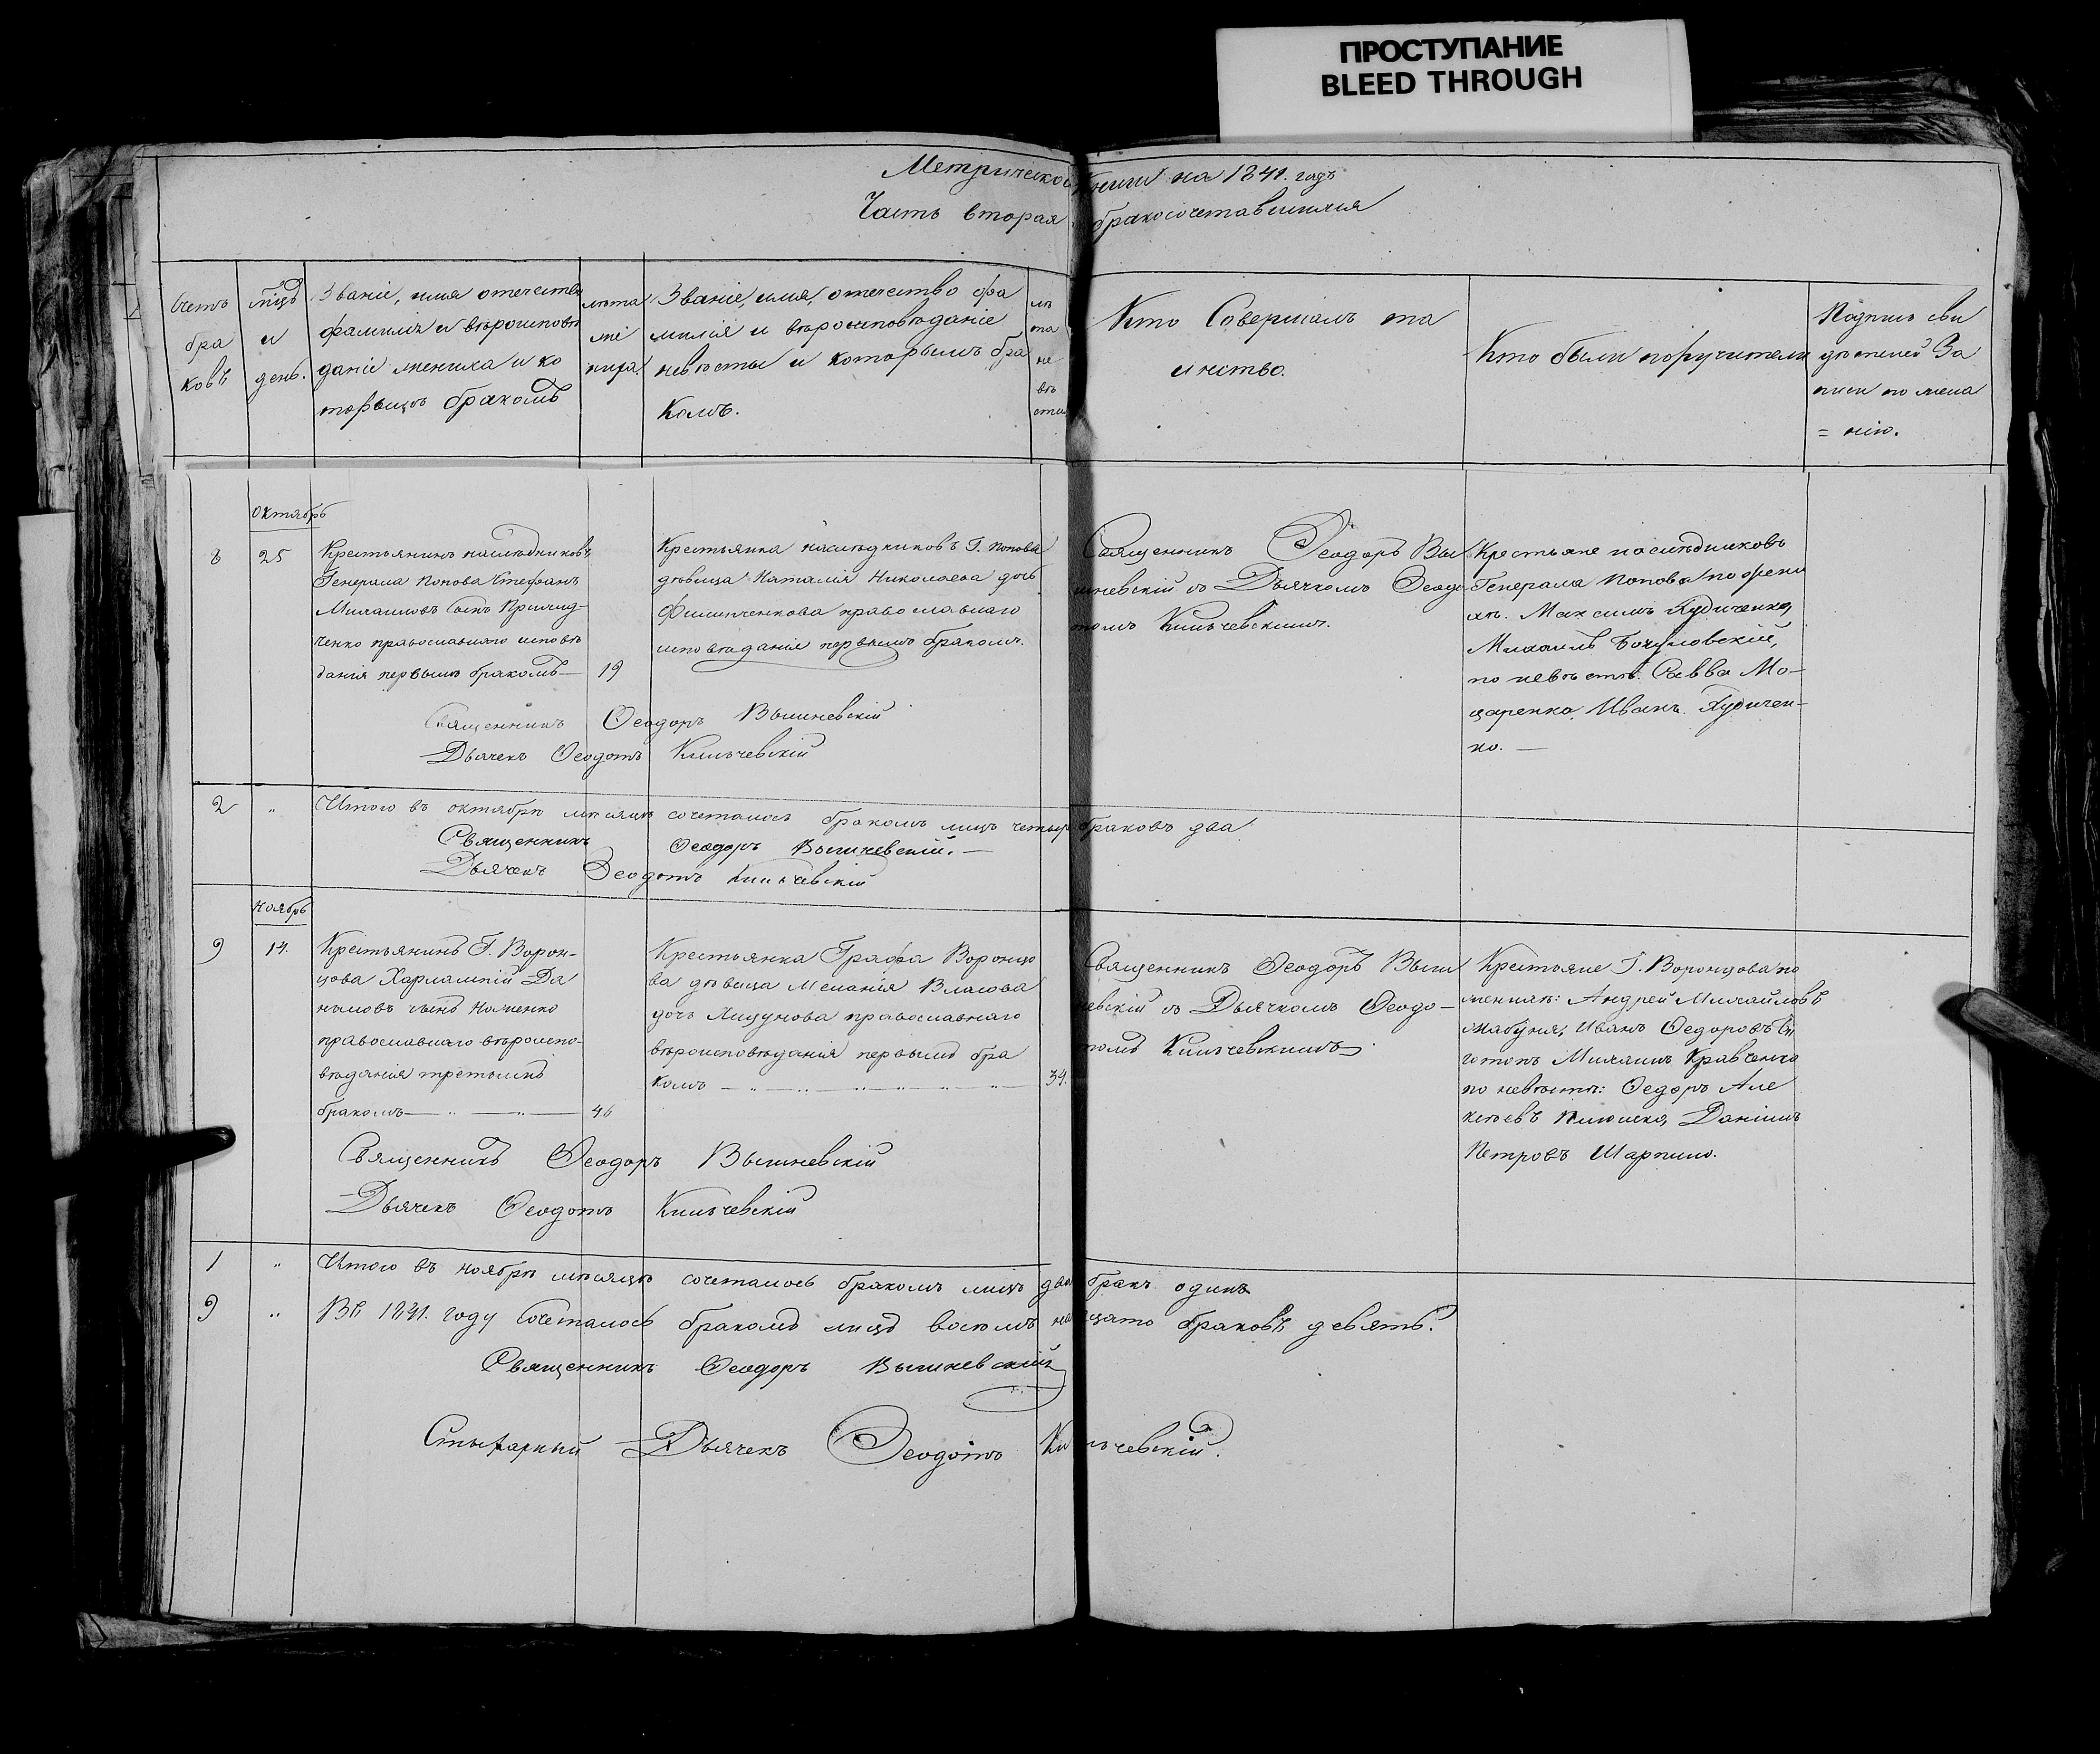 ПРОСТУПАНИЕ
BLEED THROUGH
Метрической Книги на 1841. годъ
Часть вторая бракосочетавшихся
Счетъ
бра
ковъ
мцъ
и
день.
Званіе, имя отечество
фамилія и вѣроисповѣ
даніе жениха и ко
торымъ бракомъ
лѣта
же
ниха.
Званіе, имя, отечество фа
милія и вѣроисповѣданіе
невѣсты и которымъ бра
комъ.
лѣ
та
не
вѣ
сты
Кто Совершалъ та
инство.
Кто были поручители
Подпись сви
дѣтелей За
писи по жела
= нію.
Октябрь
8
25
Крестьянинъ наслѣдниковъ
Генерала Попова Стефанъ
Михаиловъ сынъ
ченко православнаго исповѣ
данія первымъ бракомъ —
19
Крестьянка наслѣдниковъ Г. Попова
дѣвица Наталія Николаева дочь
Филипченкова православнаго
исповѣданія первымъ бракомъ.
Священникъ Ѳеодоръ Вы
шневскій съ Дьячкомъ Ѳеодо
томъ Кильчевскимъ.
Крестьяне наслѣдниковъ
Генерала Попова по жени
хѣ. Максимъ Худиченко,
Михаилъ
по невѣстѣ. Савва Мо-
царенко, Иванъ Худичен-
ко. —
Священникъ Ѳеодоръ Вышневскій
Дьячекъ Ѳеодотъ Кильчевскій
2 " Итого въ октябрѣ мѣсяцѣ сочеталось бракомъ лицъ четыре браковъ два
Священникъ Ѳеодоръ Вышневскій. —
Дьячекъ Ѳеодотъ Кильчевскій
Ноябрь
9
14.
Крестьянинъ Г. Ворон-
цова Харлампій Да
ниловъ сынъ Ноженко
православнаго вѣроиспо-
вѣданія третьимъ
бракомъ — " — " —
46
Крестьянка Графа Воронцо
ва дѣвица Меланія Власова
дочь Лицунова православнаго
вѣроисповѣданія первымъ бра
комъ — " — " — " — " — " —
34.
Священникъ Ѳеодоръ Выш
невскій съ Дьячкомъ Ѳеодо-
томъ Кильчевскимъ.
Крестьяне Г. Воронцова по
женихѣ: Андрей Михайловъ
Иванъ Ѳедоровъ
Михаилъ Кравченко
по невѣстѣ: Ѳедоръ Але
ксѣевъ Даніилъ
Петровъ Шарпило.
Священникъ Ѳеодоръ Вышневскій
Дьячекъ Ѳеодотъ Кильчевскій
1 " Итого въ ноябрѣ мѣсяцѣ сочеталось бракомъ лицъ два бракъ одинъ
9 " Въ 1841. году Сочеталось бракомъ лицъ восемьнадцать браковъ девять.
Священникъ Ѳеодоръ Вышневскій
Стихарный Дьячекъ Ѳеодотъ Кильчевскій.